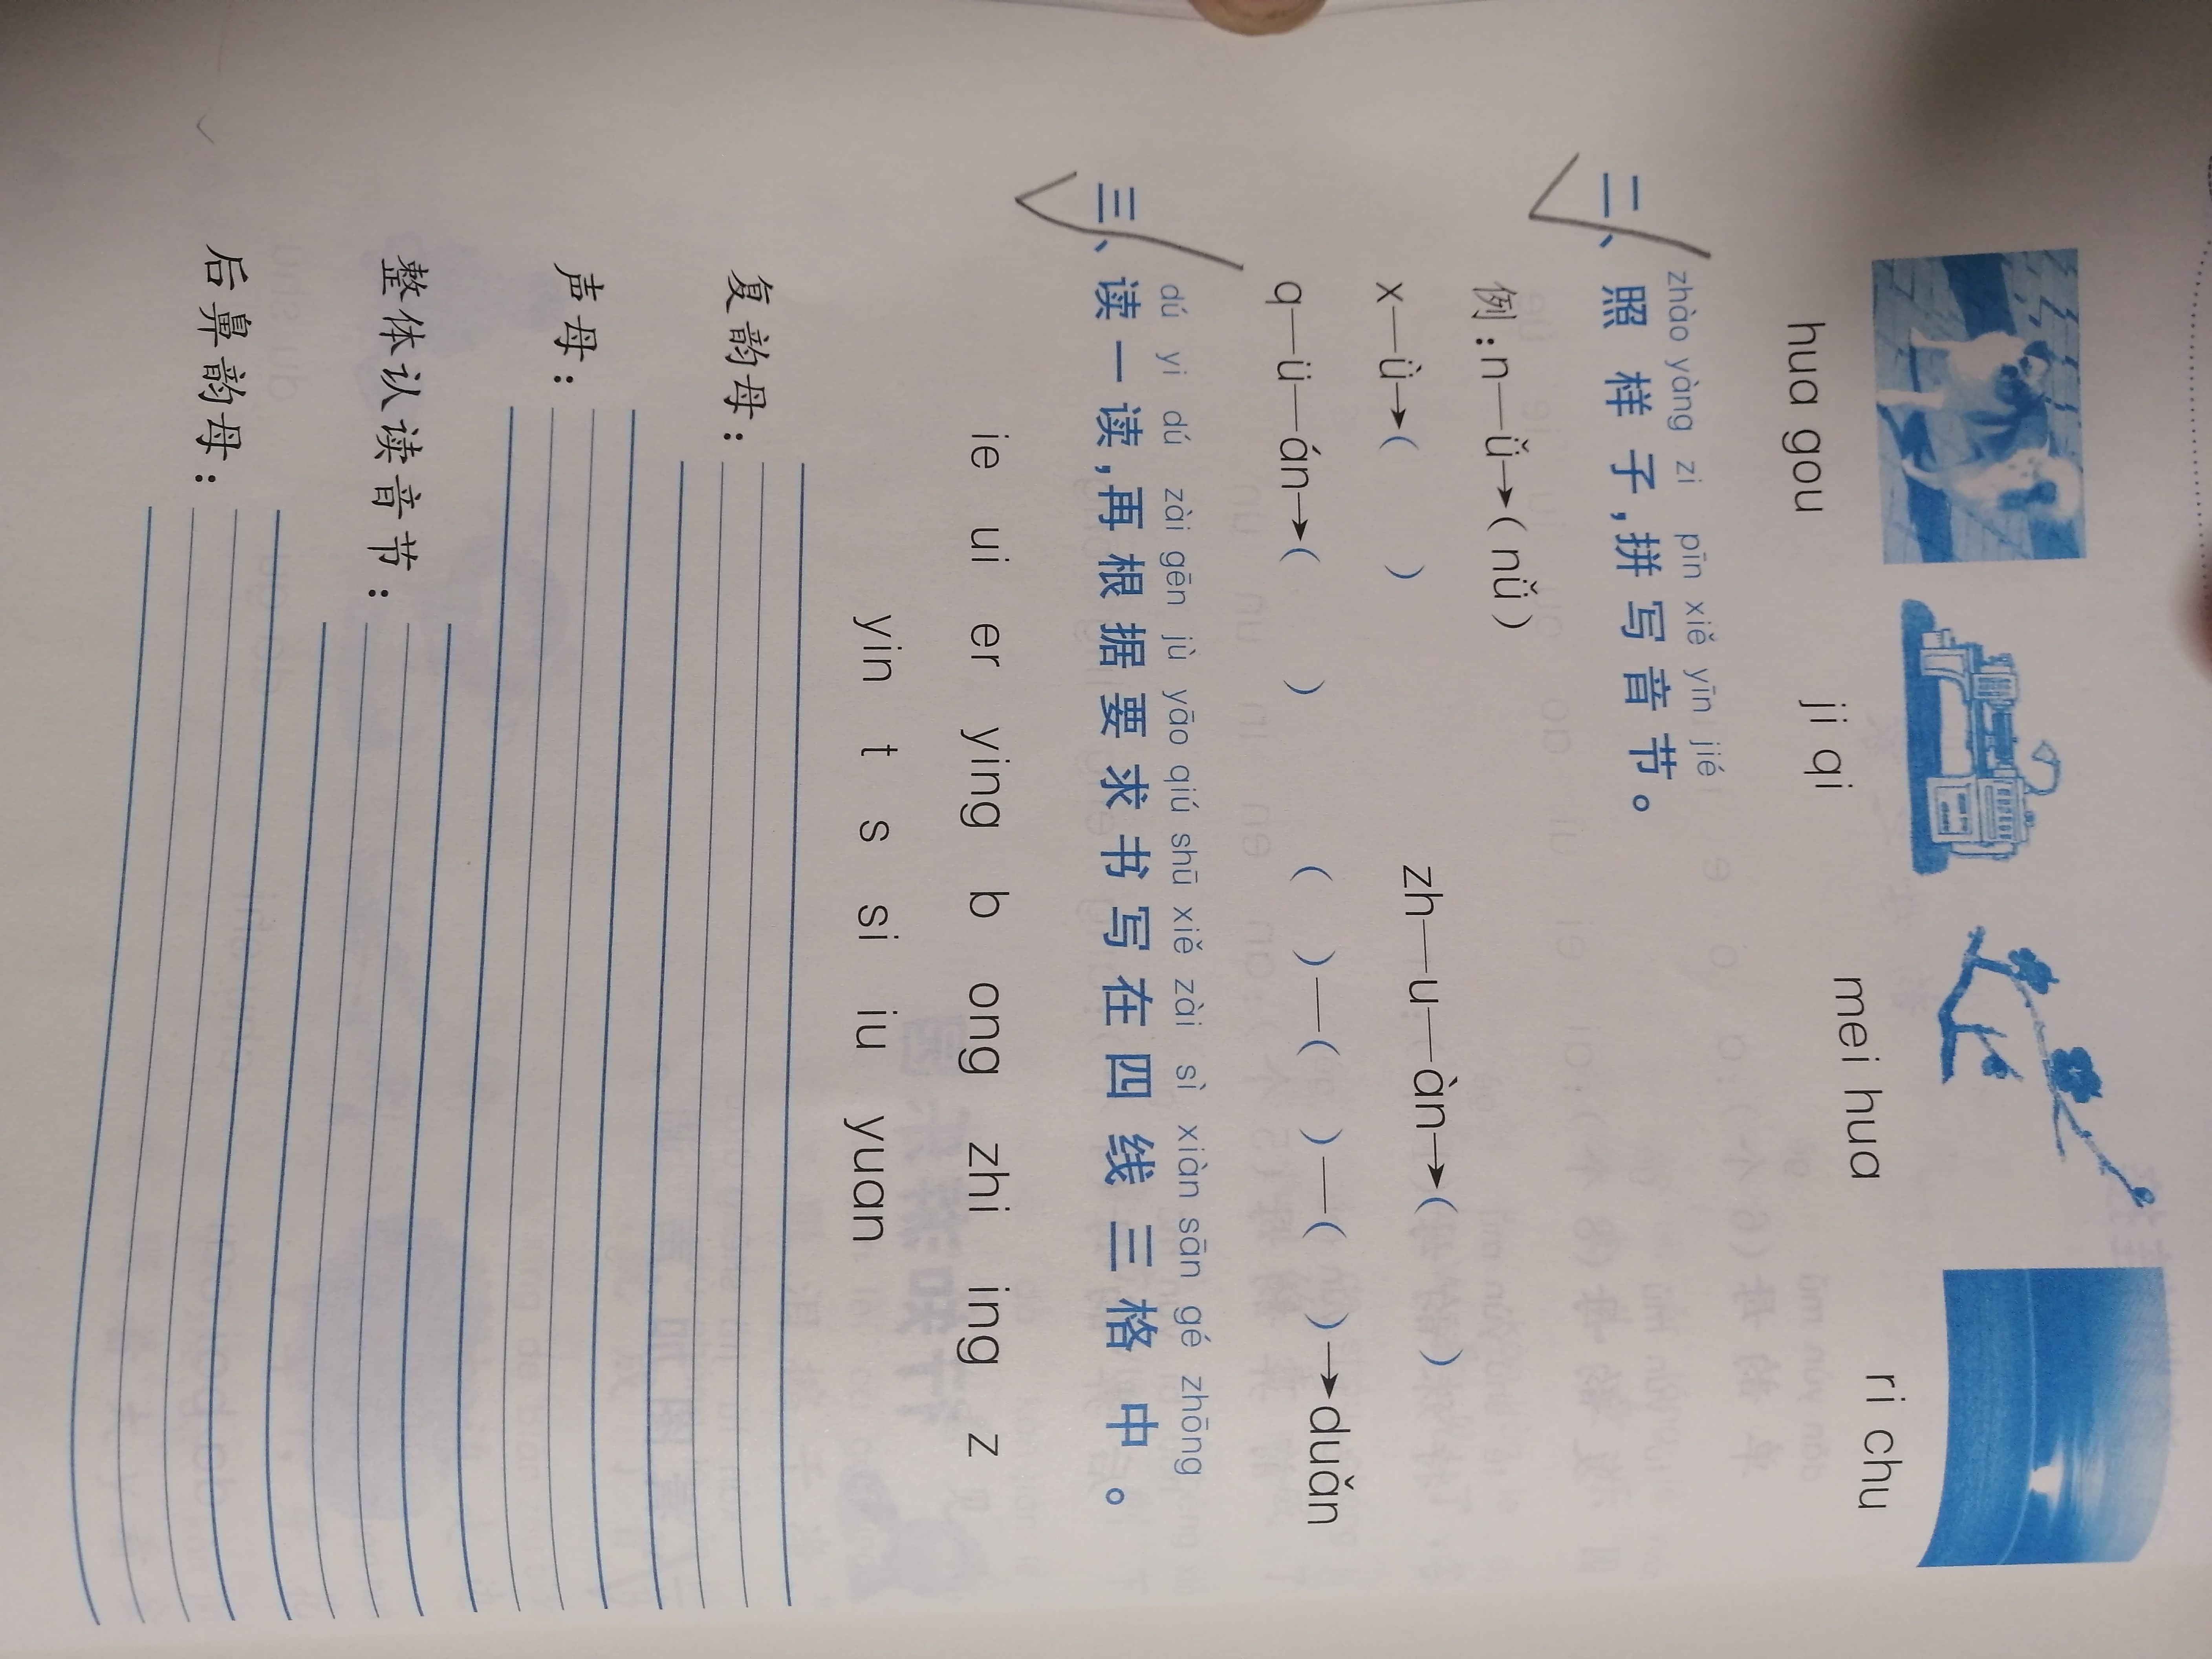 hua gou ji qi mei hua ri chu
zhào yàng zi pīn xiě yīn jié
二、照样子,拼写音节。
例:n—ǚ→(nǚ)
x—ǜ→( ) zh—u—àn→( )
q—ü—án→( ) ( )—( )—( )→duǎn
dú yi dú zài gēn jù yāo qiú shū xiě zài sì xiàn sān gé zhōng
三、读一读,再根据要求书写在四线三格中。
ie ui er ying b ong zhi ing z
yin t s si iu yuan
复韵母:
声母:
整体认读音节:
后鼻韵母: